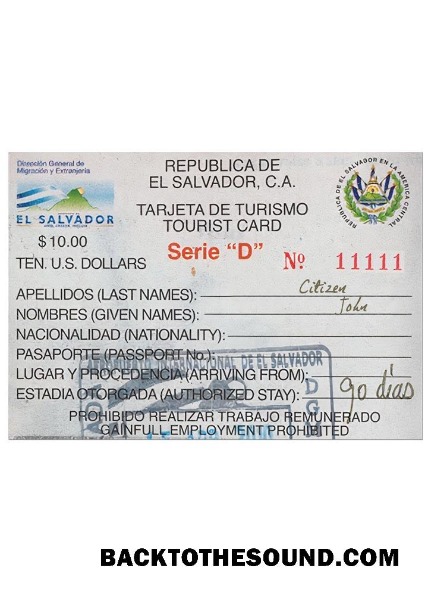 Dirección General de
Migración y Extranjería
EL SALVADOR
REPUBLICA DE
EL SALVADOR, C.A.
TARJETA DE TURISMO
TOURIST CARD
REPUBLICA DE EL SALVADOR EN LA AMERICA CENTRAL
$ 10.00
TEN. U.S. DOLLARS
Serie “D”
Nº 11111
APELLIDOS (LAST NAMES): Citizen
NOMBRES (GIVEN NAMES): John
NACIONALIDAD (NATIONALITY):
PASAPORTE (PASSPORT No.):
LUGAR Y PROCEDENCIA (ARRIVING FROM):
ESTADIA OTORGADA (AUTHORIZED STAY): 90 días
INTERNACIONAL DE EL SALVADOR
PROHIBIDO REALIZAR TRABAJO REMUNERADO
GAINFULL EMPLOYMENT PROHIBITED
BACKTOTHESOUND.COM